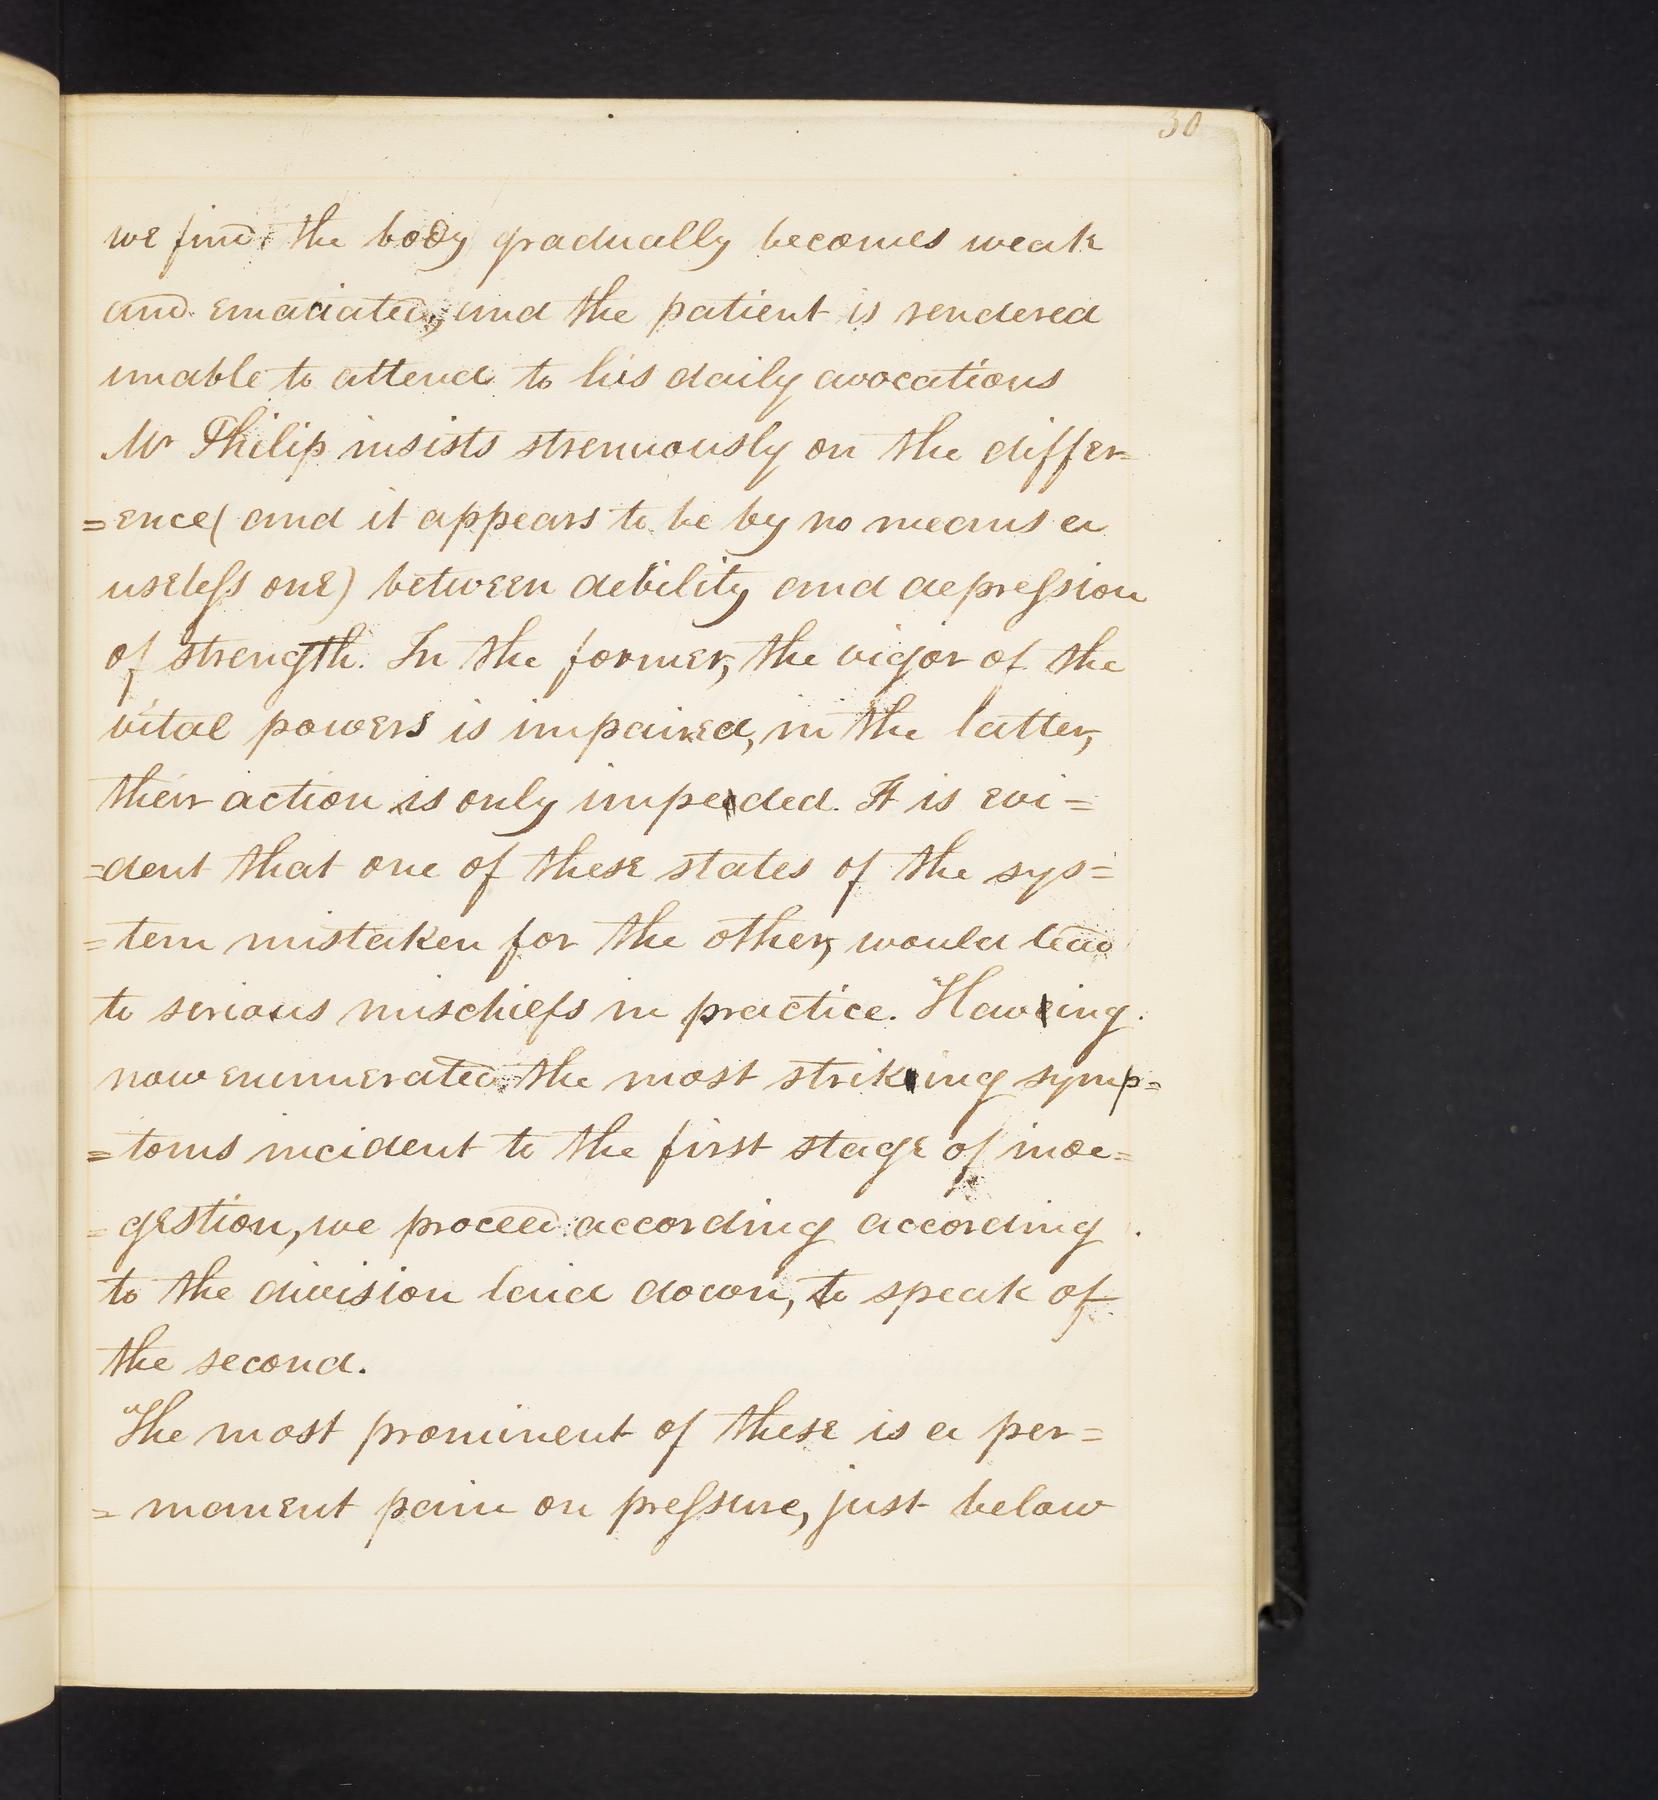 30
we find the body gradually becomes weak
and emaciated, and the patient is rendered
unable to attend to his daily avocations
Mr Philip insists strenuously on the differ=
=ence (and it appears to be by no means a
useless one) between debility and depression
of strength. In the former, the vigor of the
vital powers is impaired, in the latter,
their action is only impeded. It is evi=
=dent that one of these states of the sys=
=tem mistaken for the other, would lead
to serious mischiefs in practice. Having
now enumerated the most striking symp=
=toms incident to the first stage of inde=
=gestion, we proceed according according
to the division laid down, to speak of
the second.
The most prominent of these is a per=
=manent pain on pressure, just below